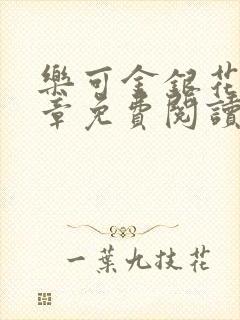 樂可金銀花
章免費閱讀
一葉九技花